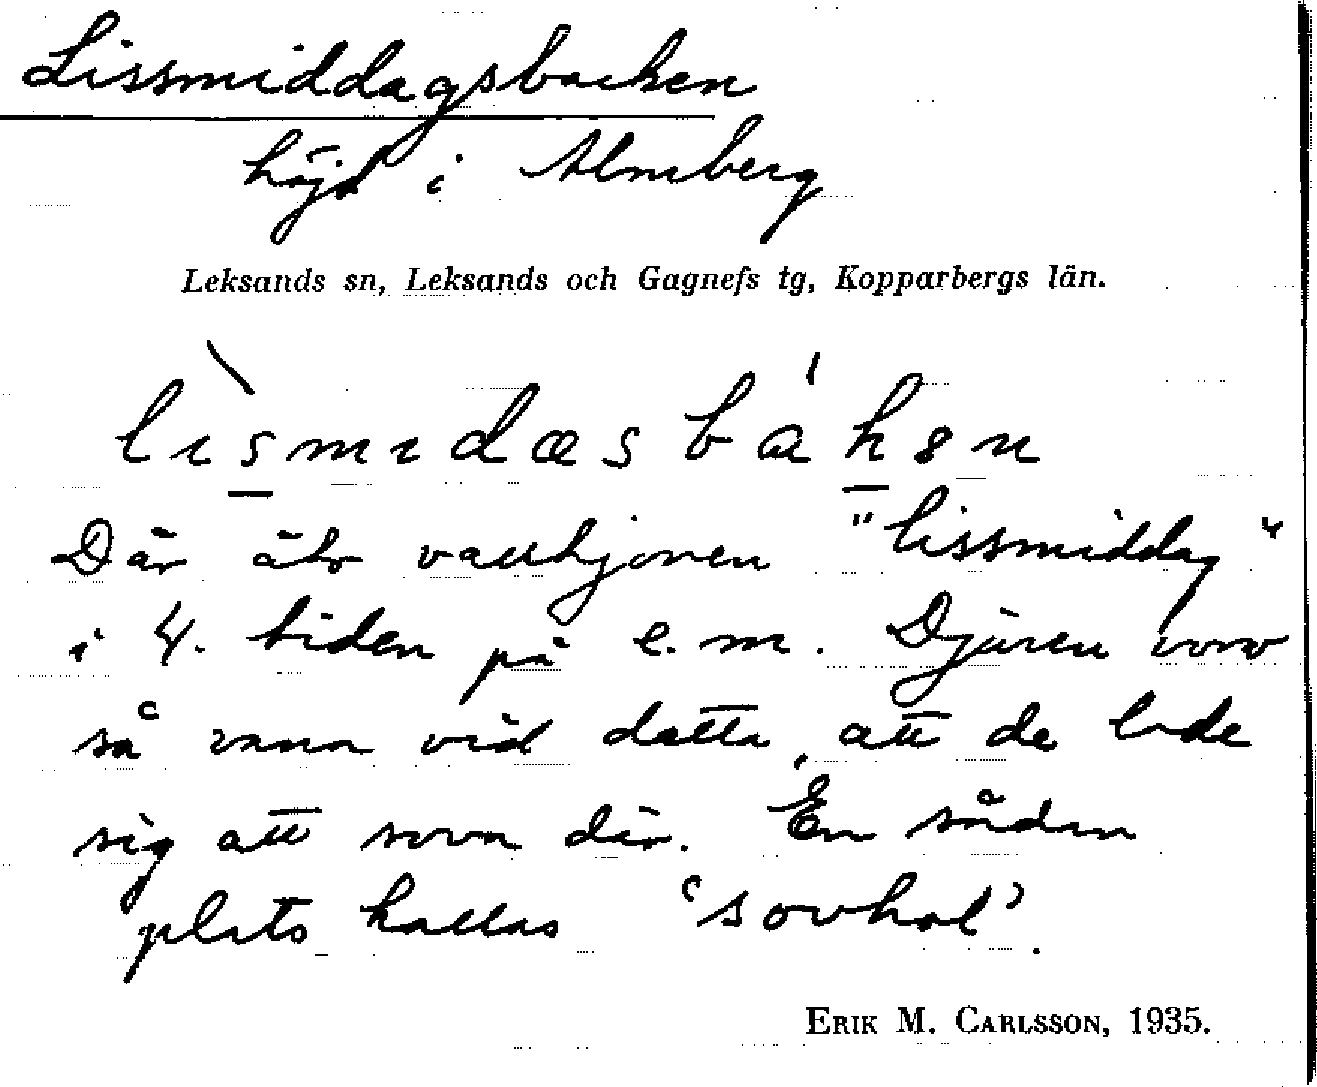 Lissmiddagsbacken
höjd i Almberg
Leksands sn, Leksands och Gagnefs tg, Kopparbergs län.
Där åto vallhjonen "lissmiddag"
i 4. tiden på e.m. Djuren voro
så vana vid detta, att de lade
sig att sova där. En sådan
plats kallas 'sovhol'.
ERIK M. CARLSSON, 1935.